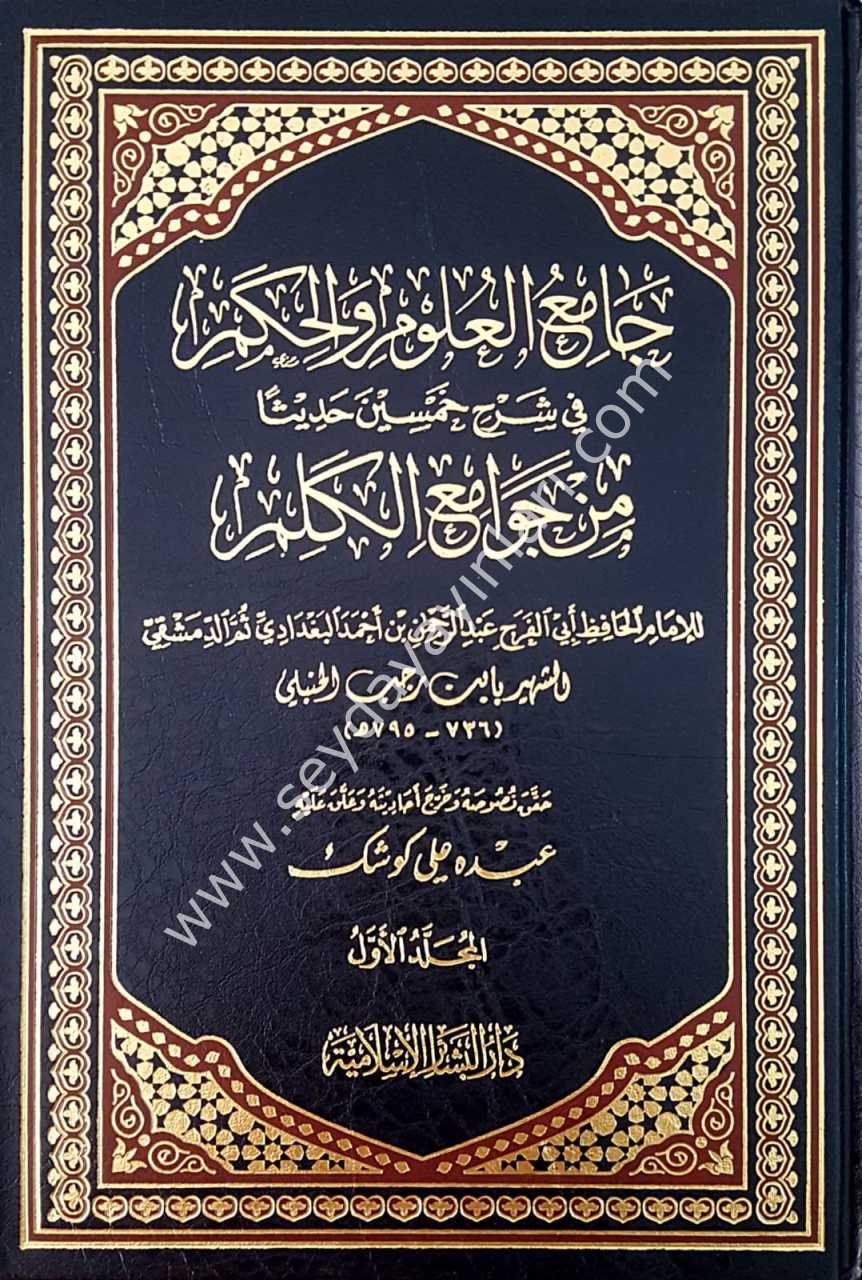 جَامِعُ الْعُلُوْمِ وَالْحِكَمِ
فِي شَرْحِ خَمْسِيْنَ حَدِيْثًا
مِنْ جَوَامِعِ الْكَلِمِ
لِلإِمَامِ الْحَافِظِ أَبِي الْفَرَجِ عَبْدِ الرَّحْمٰنِ بْنِ أَحْمَدَ الْبَغْدَادِيِّ ثُمَّ الدِّمَشْقِيِّ
الشهير بابن رجب الحنبلي
(٧٣٦ - ٧٩٥ هـ)
حَقَّقَ نُصُوصَهُ وَخَرَّجَ أَحَادِيثَهُ وَعَلَّقَ عَلَيْهِ
عبده علي كوشك
الْمُجَلَّدُ الْأَوَّلُ
دَارُ الْبَشَائِرِ الْإِسْلَامِيَّة
www.seydayayinlari.com